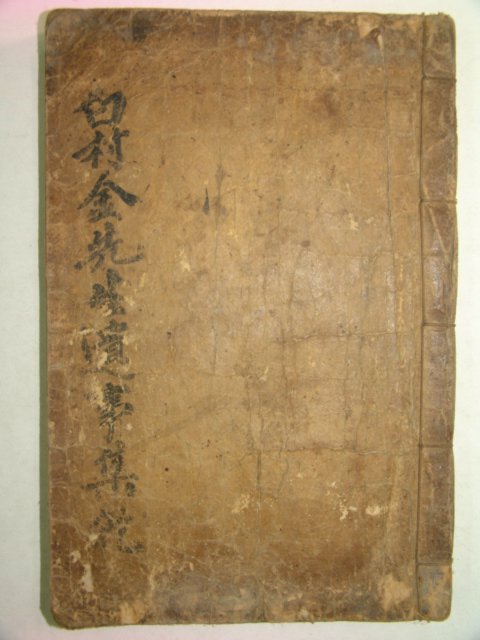 白村金先生遺事集